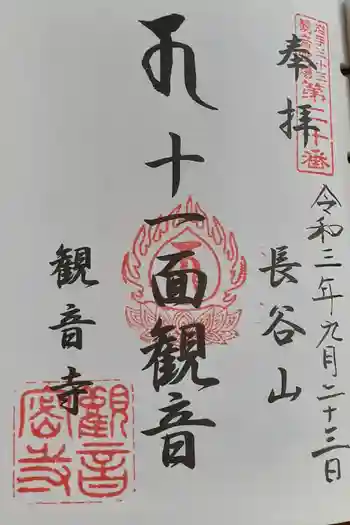 第二十番
奉拝
令和三年九月二十三日
長谷山
十一面観音
観音寺
觀音